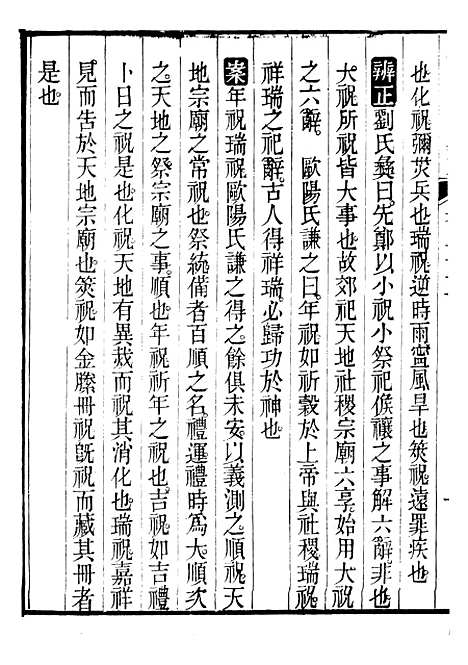 也化祝彌烖兵也瑞祝逆時雨寧風旱也筴祝遠罪疾也
辨正劉氏彝曰先鄭以小祝小祭祀侯禳之事解六辭非也
大祝所祝皆大事也故郊祀天地社稷宗廟六享始用大祝
之六辭 歐陽氏謙之曰年祝如祈穀於上帝與社稷瑞祝
祥瑞之祀辭古人得祥瑞必歸功於神也
案年祝瑞祝歐陽氏謙之得之餘俱未安以義測之順祝天
地宗廟之常祝也祭統備者百順之名禮運禮時爲大順次
之天地之祭宗廟之事順也年祝祈年之祝也吉祝如吉禮
卜日之祝是也化祝天地有異烖而祝其消化也瑞祝嘉祥
見而告於天地宗廟也筴祝如金縢冊祝旣祝而藏其冊者
是也